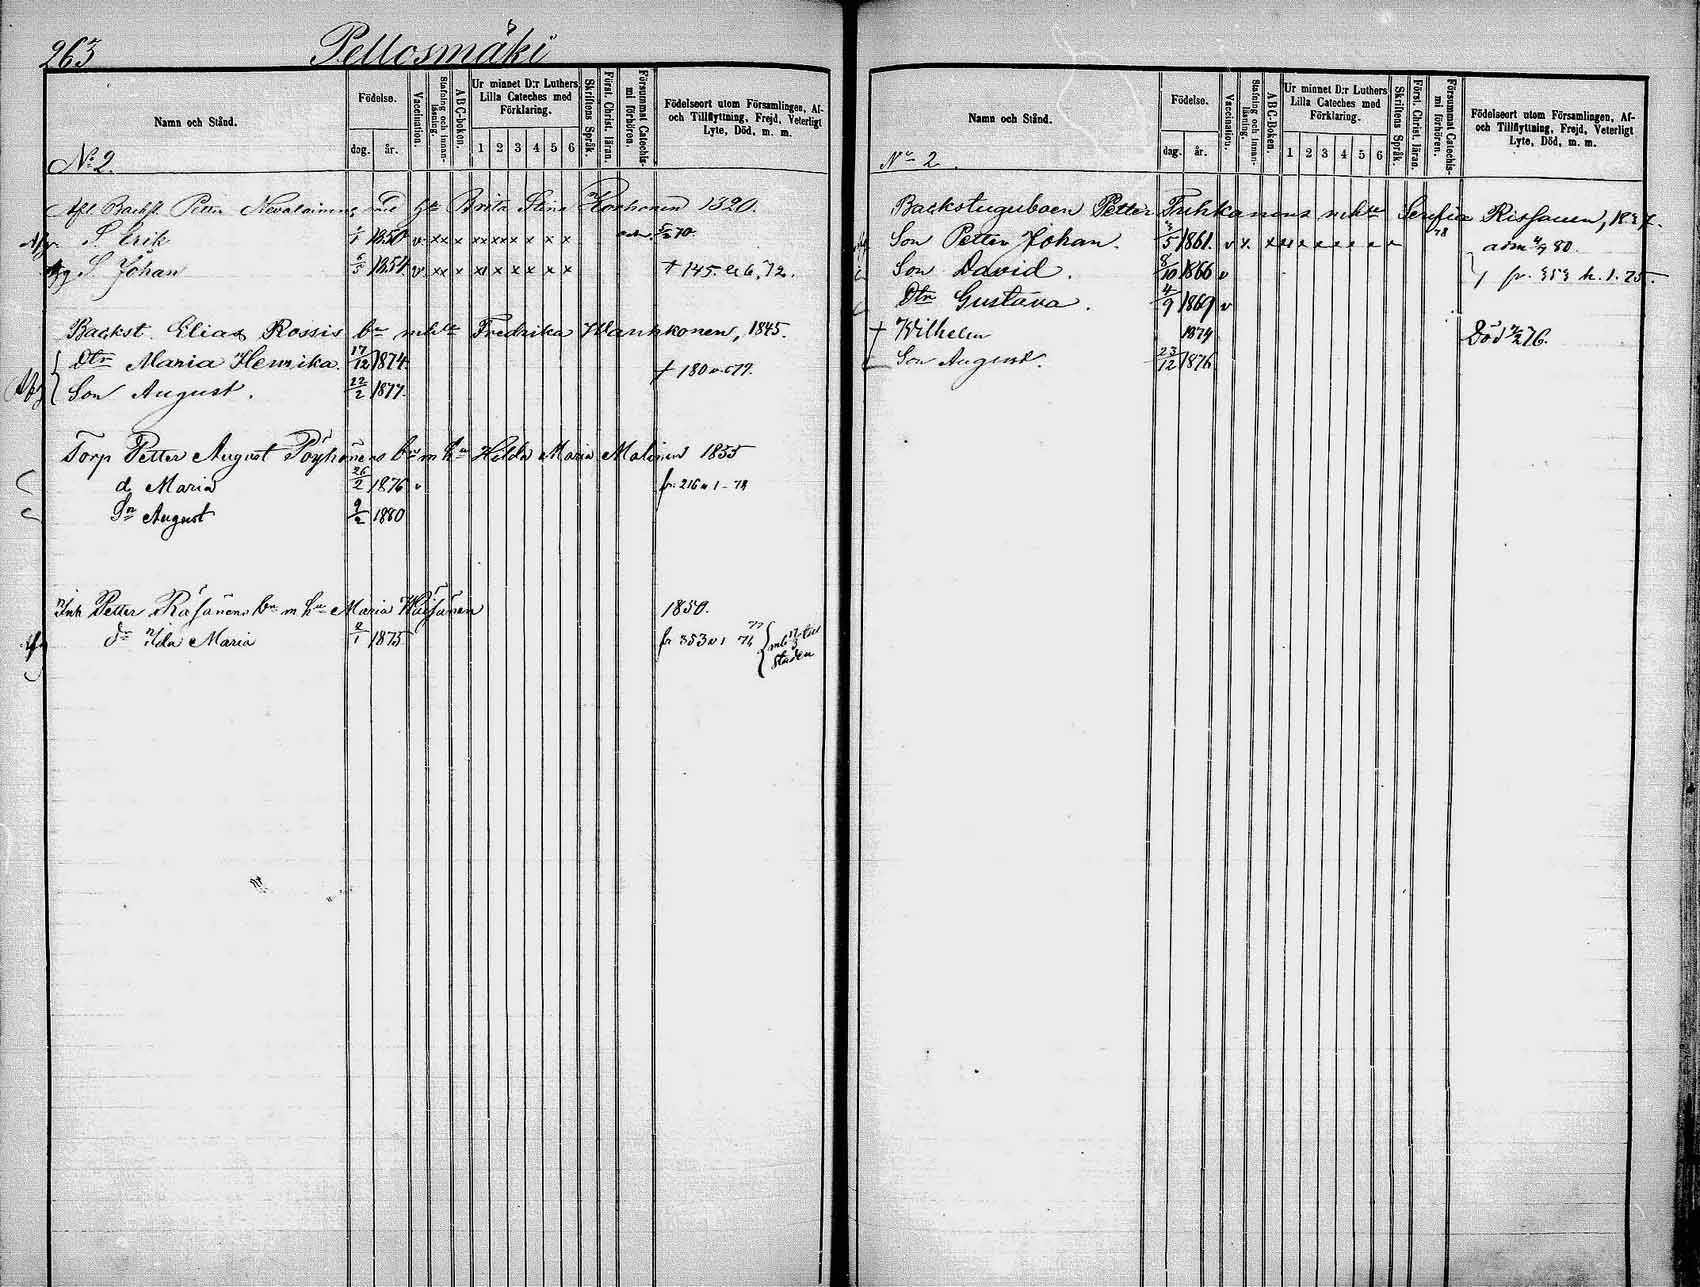 263 Pellosmäki
Namn och Stånd.
Födelse.
dag. år.
Vaccination.
Stafning och innanläsning.
ABC-boken.
Ur minnet D:r Luthers Lilla Cateches med Förklaring.
1 2 3 4 5 6
Skriftens Språk.
Först. Christ. läran.
Försummat Catechismi förhören.
Födelseort utom Församlingen, Af- och Tillflyttning, Frejd, Veterligt Lyte, Död, m. m.
No 2.
Afl. Backst. Petter Nevalainens Brita Stina 1820.
S. Erik 1850 v xx x xx xx x x x x 70.
S. Johan 6/5 1854 v xx x xx x x x x x † 145. 72.
Backst. Elias Rossis Fredrika 1845.
Dtr Maria Henrika. 17/12 1874.
† 180 77.
Son August. 22/2 1877.
Torp Petter August Pöyhönens bn m hu Hilda Maria Malinen 1855
d. Maria 26/2 1876 v fr. 216 1-78
Sn August 9/2 1880
Inh Petter Räsänens bn m hu Maria 1850.
Ida Maria 2/1 1875 fr 353
till Staden
Namn och Stånd.
Födelse.
dag. år.
Vaccination.
Stafning och innanläsning.
ABC-Boken.
Ur minnet D:r Luthers Lilla Cateches med Förklaring.
1 2 3 4 5 6
Skriftens Språk.
Först. Christ. läran.
Försummat Catechismi förhören.
Födelseort utom Församlingen, Af- och Tillflyttning, Frejd, Veterligt Lyte, Död, m. m.
No 2.
Backstuguboen Petter Rissanen, 1837.
Son Petter Johan. 1861. v x. x xx x x x x x x 78 80.
Son David. 8/10 1866 v fr. 353 h. 1. 75.
Dtr Gustava. 4/9 1869 v
† Wilhelm 1874 Död 76.
Son August. 23/12 1876